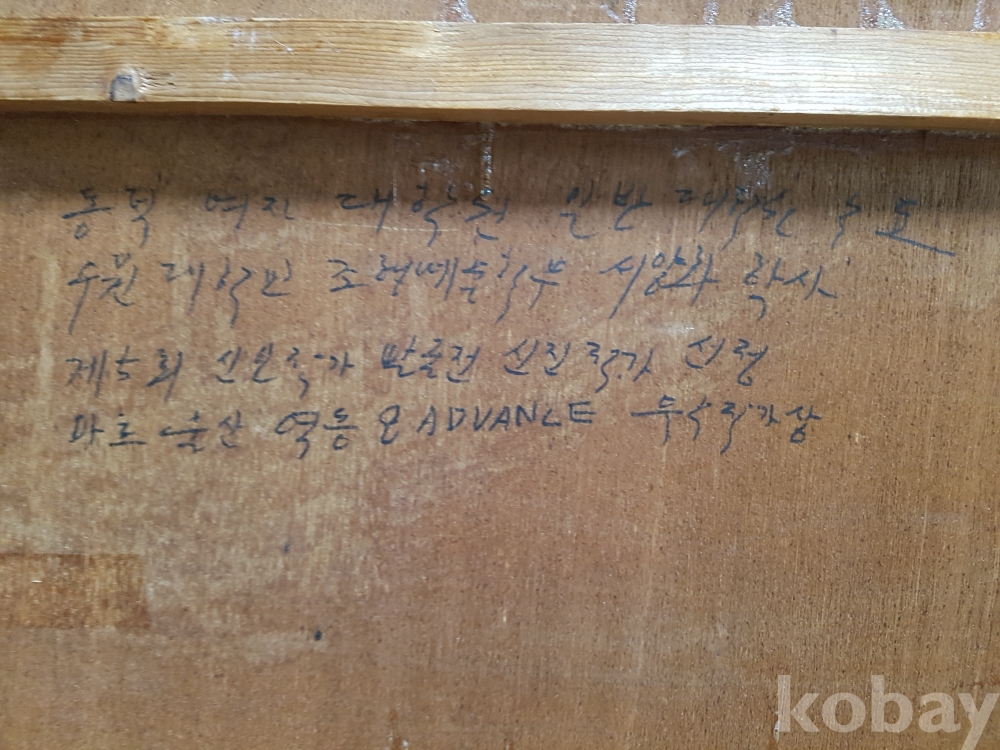 동덕 여자 대학원 일반 대학원 수료
수원 대학교 조형예술학부 서양화 학사
제5회 신인작가 발굴전 신진작가 선정
마로 울산 역동 온 ADVANCE 우수작가상
kobay